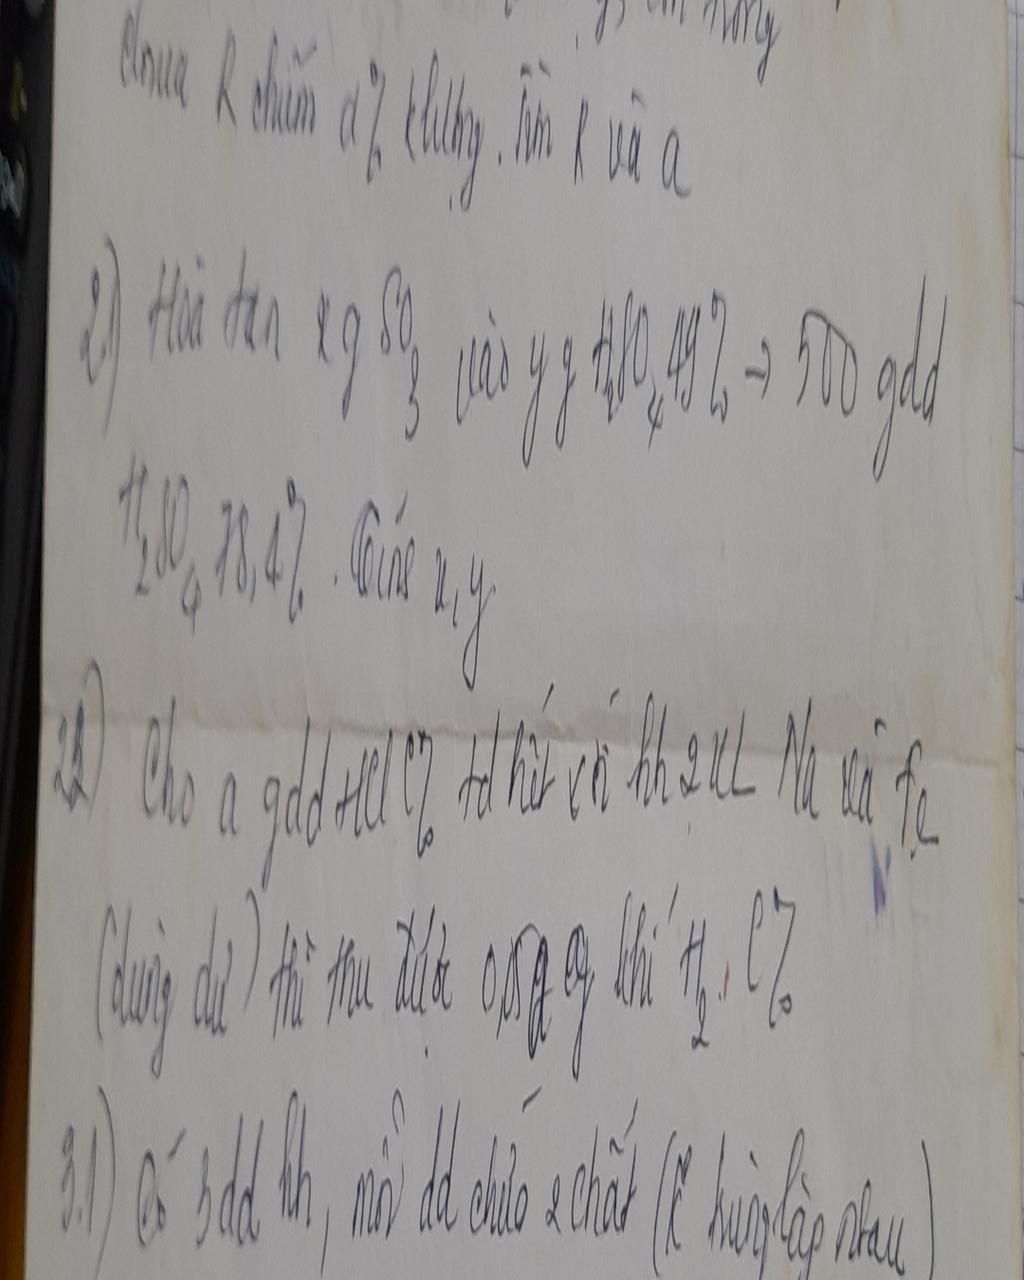 chứa R chiếm a% klượng. Tìm R và a
2.) Hoà tan x g SO3 vào y g H2SO4 49% → 500 gdd
H2SO4 78,4%. Tính x, y
2.2) Cho a gdd HCl C% td hết với hh 2 KL Na và Fe
(dùng dư) thì thu được 0,05a g khí H2. C%
3.1) Có 3 dd hh, mỗi dd chứa 2 chất (K trùng lặp nhau)